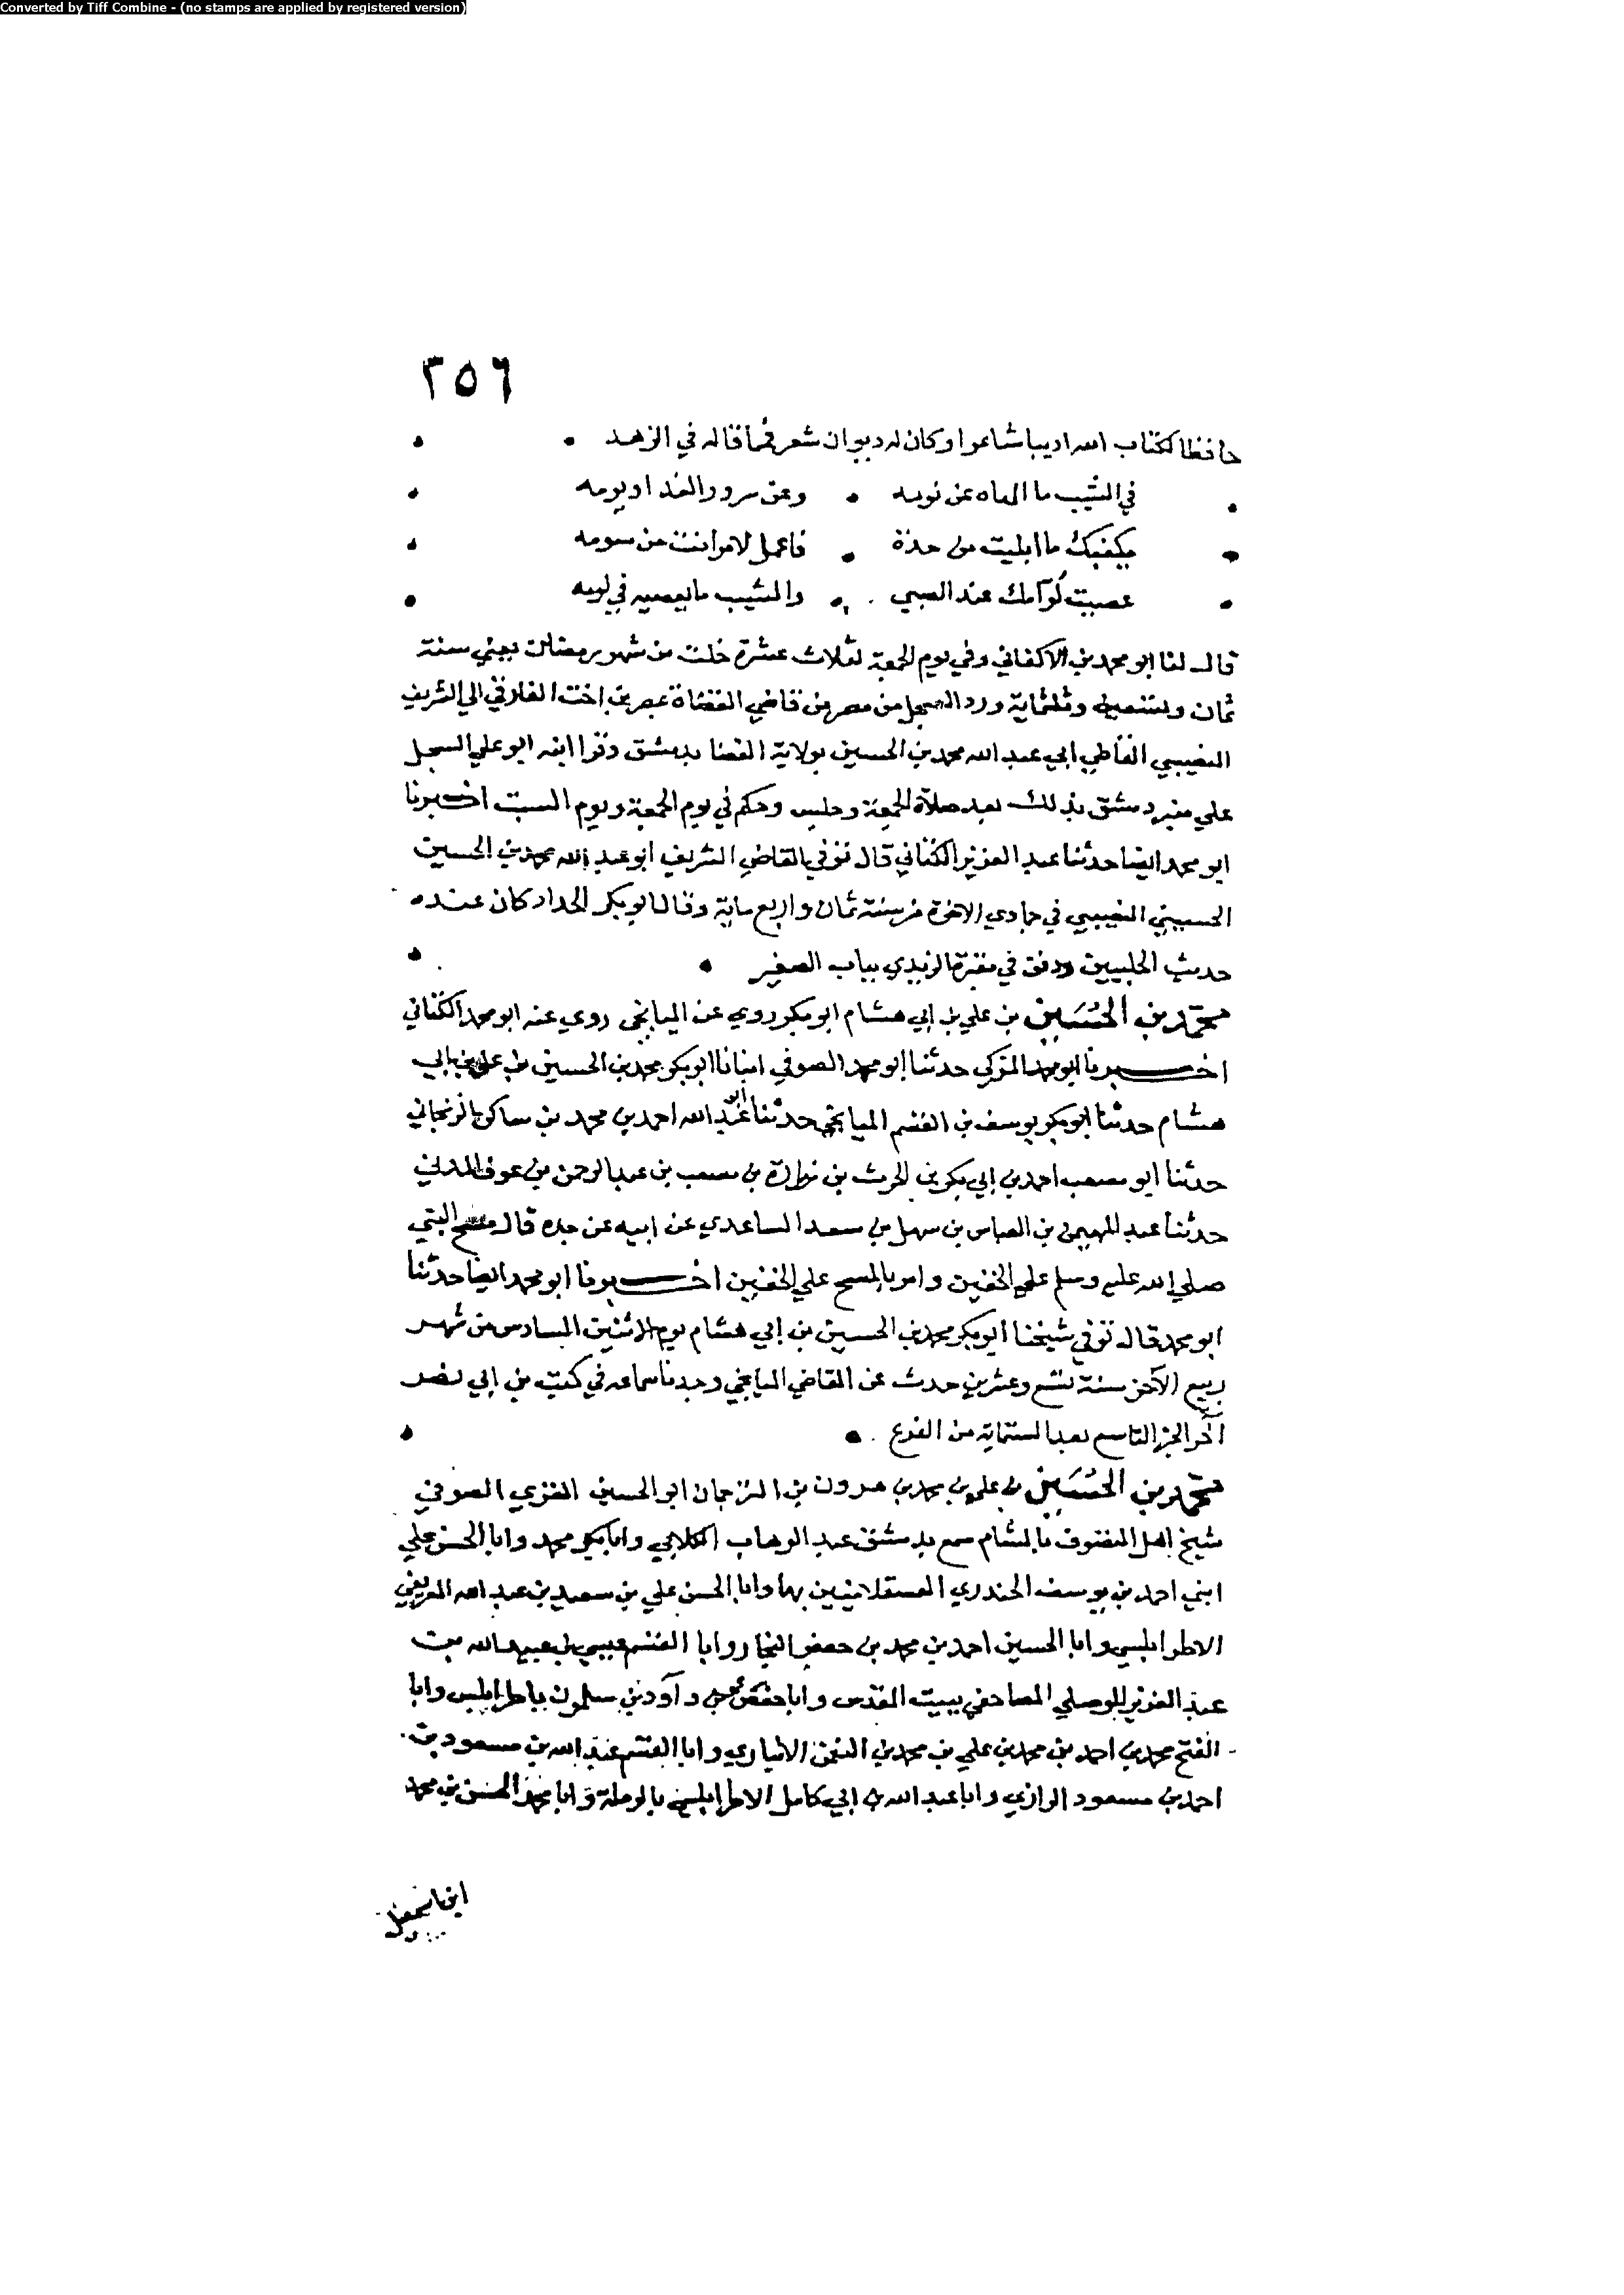 Converted by Tiff Combine - (no stamps are applied by registered version)
٣٥٦
حافظا لكتاب الله اديبا شاعرا وكان له ديوان شعر فمما قاله في الزهد
في الشيب ما الهاه عن نومه • وعن سرور الغد او يومه
يكفيك ما ابليت من حدة • فاعمل لامر انت من سومه
عصيت لوامك عند الصبي • والشيب ما يعصيه في لومه
قال لنا ابو محمد بن الاكفاني وفي يوم الجمعة لثلاث عشرة خلت من شهر رمضان يعني سنة
ثمان وتسعين وثلثماية ورد السجل من مصر من قاضي القضاة بمصر بن اخت الفارقي الي الشريف
النصيبي القاضي ابي عبد الله محمد بن الحسين بولاية القضا بدمشق وقرا ابنه ابو علي السجل
علي منبر دمشق بذلك بعد صلاة الجمعة وجلس وحكم في يوم الجمعة ويوم السبت اخبرنا
ابو محمد ايضا حدثنا عبد العزيز الكتاني قال توفي القاضي الشريف ابو عبد الله محمد بن الحسين
الحسيني النصيبي في جمادي الاخرة من سنة ثمان واربع ماية وقال ابو بكر الحداد كان عنده
حديث الحلبيين ودفن في مقبرة الزيدي بباب الصغير
محمد بن الحسين بن علي بن ابي هشام ابو بكر روي عن الميانجي روي عنه ابو محمد الكتاني
اخبرنا ابو محمد المزكي حدثنا ابو محمد الصوفي انبانا ابو بكر محمد بن الحسين بن علي بن ابي
هشام حدثنا ابو بكر يوسف بن القسم الميانجي حدثنا عبد الله احمد بن محمد بن ساكن الزنجاني
حدثنا ابو مصعب احمد بن ابي بكر بن الحرث بن زرارة بن مصعب بن عبد الرحمن بن عوف المدني
حدثنا عبد المهيمن بن العباس بن سهل بن سعد الساعدي عن ابيه عن جده قال مسح النبي
صلي الله عليه وسلم علي الخفين وامر بالمسح علي الخفين اخبرنا ابو محمد ايضا حدثنا
ابو محمد قال توفي شيخنا ابو بكر محمد بن الحسين بن ابي هشام يوم الاثنين السادس من شهر
ربيع الآخر سنة تسع وعشرين حدث عن القاضي الميانجي وجدنا سماعه في كتب بن ابي نصر
آخر الجز التاسع بعد الستماية من الفرع
محمد بن الحسين بن علي بن محمد بن هرون بن الترجمان ابو الحسين الغزي الصوفي
شيخ اهل التصوف بالشام سمع بدمشق عبد الوهاب الكلابي وابا بكر محمد وابا الحسن علي
ابني احمد بن يوسف الحندري العسقلانيين بها وابا الحسن علي بن سعيد بن عبد الله
الاطرابلسي وابا الحسين احمد بن محمد بن حفص النجار وابا القسم عيسي بن عبيد الله بن
عبد العزيز الموصلي المصاحفي ببيت المقدس وابا حفص عمر بن داود بن سلمون باطرابلس وابا
الفتح محمد بن احمد بن محمد بن علي بن محمد بن النعمن الانباري وابا القسم عبد الله بن مسعود بن
احمد بن مسعود الرازي وابا عبد الله بن ابي كامل الاطرابلسي بالرملة وابا محمد الحسن بن محمد
ابن اسمعيل